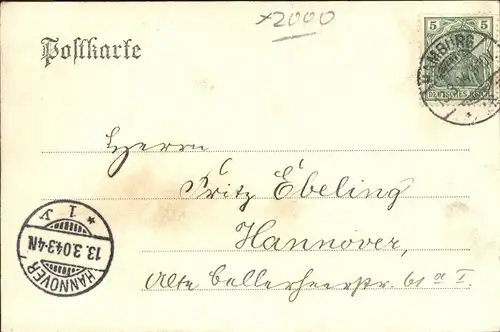 x2000
Postkarte
5 5
HAMBURG
DEUTSCHES REICH
Herrn
Fritz Ebeling
Hannover,
Alte Cellerheerstr. 61 a I.
* 1 y
13.3.04 3-4 N
HANNOVER